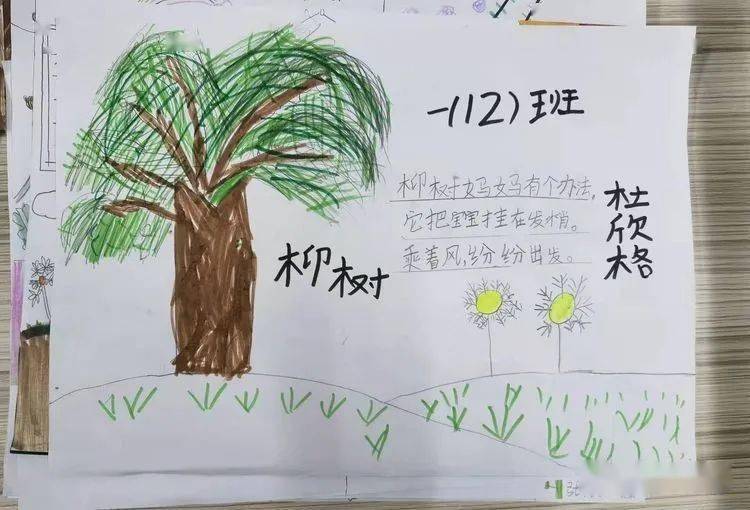 一(12)班
柳树妈妈有个办法,
它把宝宝挂在发梢。
乘着风,纷纷出发。
杜欣格
柳树